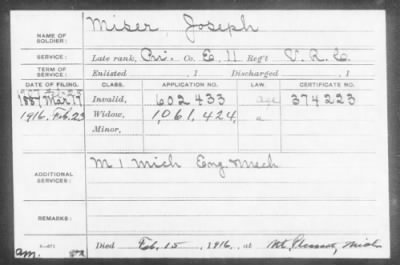 NAME OF SOLDIER: Miser, Joseph
SERVICE: Late rank, Pri. Co. E 11 Reg't V. R. C.
TERM OF SERVICE: Enlisted , 1 Discharged , 1
DATE OF FILING. CLASS. APPLICATION NO. LAW. CERTIFICATE NO.
1887 Mar 17 Invalid, 602 433 age 374223
1916, Feb. 23 Widow, 1,061,424, a
Minor,
ADDITIONAL SERVICES: M 1 Mich Eng Mech
REMARKS:
Died Feb. 15, 1916, at Mt. Pleasant, Mich